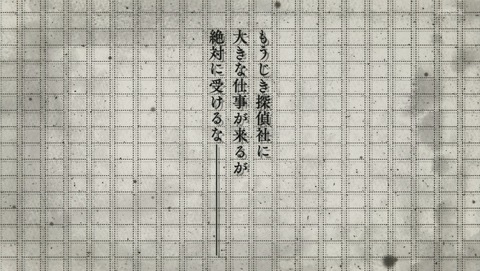 もうじき探偵社に
大きな仕事が来るが
絶対に受けるな――